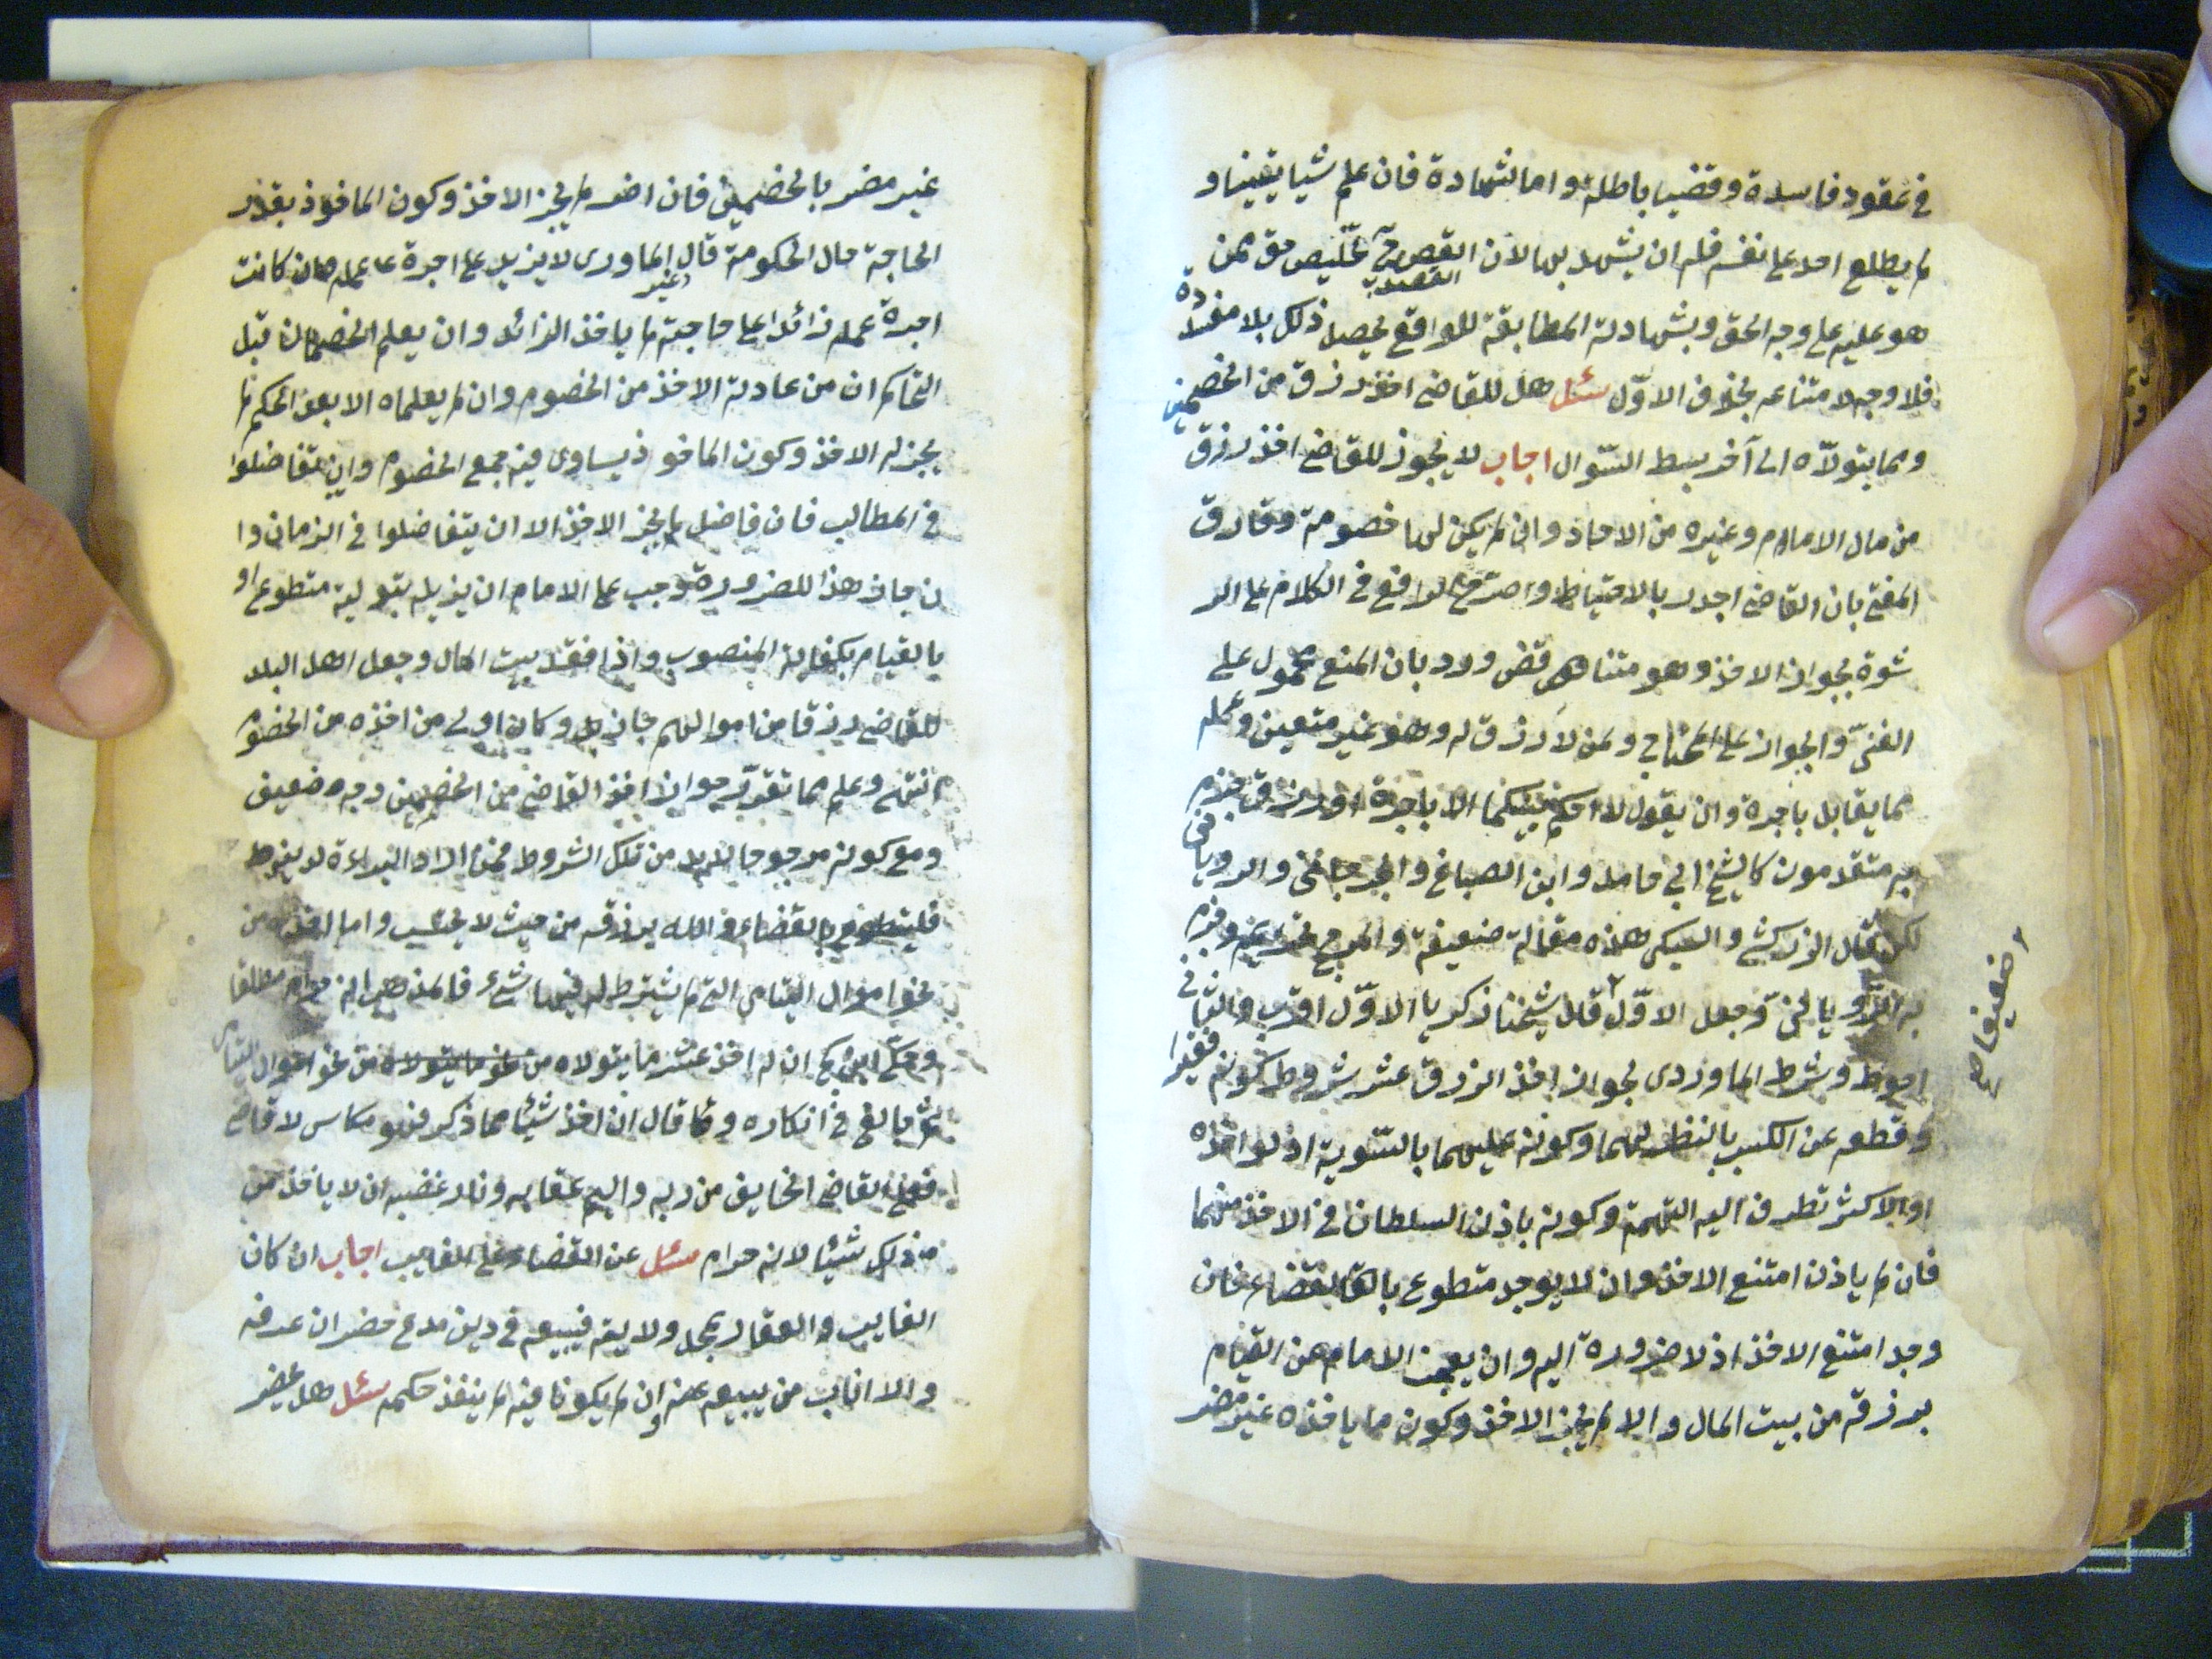 في عقود فاسدة وقضيب باطلة واما الشهادة فان علم شيا يقينا و
لم يطلع احد على نفسه فله ان يشهد بها لان القصد تخليص حق ممن
هو عليه على وجه الحق وبشهادته المطابقة للواقع يحصل ذلك بلا مفسدة
فلا وجه لامتناعه بخلاف الاوّل سئل هل للقاضي اخذ رزق من الخصمين
ومما يتولاّه الى آخر بسط السّوال اجاب لا يجوز للقاضي اخذ رزق
من مال الامام وغيره من الاحاد وان لم يكن لها خصومة وفارق
المفتي بان القاضي اجدر بالاحتياط وما صرّح الرافعي في الكلام على الر
شوة بجواز الاخذ وهو متناقض ورد بان المنع محمول على
الغنيّ والجواز على المحتاج ومن لا رزق له وهو غير متعين وعمله
مما يقابل باجرة وان يقول لا احكم بينكما الا باجرة او رزق جزم
به متقدمون كالشيخ ابي حامد وابن الصباغ والجرجاني والرويانى
لكن قال الزركشي والسبكي هذه مقالة ضعيفة والمرجح تحريم وجزم
به الرّويانيّ وجعل الاوّل قال شيخنا زكريا الاوّل اقرب والثاني
احوط وشرط الماوردى لجواز اخذ الرزق عشر شروط كونه فقيرا
وقطعه عن الكسب بالنظر لهما وكونه عليهما بالسّوية اذ لو اخذه
او الاكثر تطرق اليه التهمة وكونه باذن السلطان في الاخذ منهما
فان لم ياذن امتنع الاخذ وان لا يوجد متطوع بالقضاء فان
وجد امتنع الاخذ اذ لا ضرورة اليه وان يعجز الامام عن القيام
برزقه من بيت المال والا لم يجز الاخذ وكون ما ياخذه غير مضر
غير مضر بالخصمين فان اضر لم يجز الاخذ وكون الماخوذ بقدر
الحاجة حال الحكومة قال الماوردى لا يزيد على اجرة عمله فان كانت
اجرة عمله زائدا على حاجته لم ياخذ الزائد وان يعلم الخصمان قبل
التحاكم ان من عادته الاخذ من الخصوم وان لم يعلماه الا بعد الحكم لم
يجز له الاخذ وكون الماخوذ يساوى فيه جميع الخصوم وان تفاضلوا
في المطالب فان فاضل لم يجز الاخذ الا ان يتفاضلوا في الزمان وا
ن جاز هذا للضرورة وجب على الامام ان يزيله بتولية متطوع او
بالقيام بكفاية المنصوب واذا فقد بيت المال وجعل اهل البلد
للقاضي رزقا من اموالهم جاز وكان اولى من اخذه من الخصوم
انتهى وعلم مما تقرّر جواز اخذ القاضي من الخصمين وجه ضعيف
ومع كونه مرجوحا لابد من تلك الشروط فمن اراد البراءة لدينه
فليتطوع بالقضاء فالله يرزقه من حيث لا يحتسب واما اخذه من
نحو اموال اليتامى التي لم يشترط له فيها شيء فالمذهب انه حرام مطلقا
وحكى ان له اخذ عشر ما يتولاه من نحو ما يتولاه من نحو اموال اليتامى
ثم بالغ في انكاره وقال ان اخذ شيئا مما ذكر فهو مكاس لا قاض
فعلى القاضي الخايف من ربه واليم عقابه ونار غضبه ان لا ياخذ من
ذلك شيئا لانه حرام سئل عن القضاء على الغايب اجاب ان كان
الغايب والعقار بمحل ولايته فيبيعه في دين مدع حضر ان عرفه
والا اناب من يبيعه عنه وان لم يكونا فيه لم ينفذ حكمه سئل هل يحضر